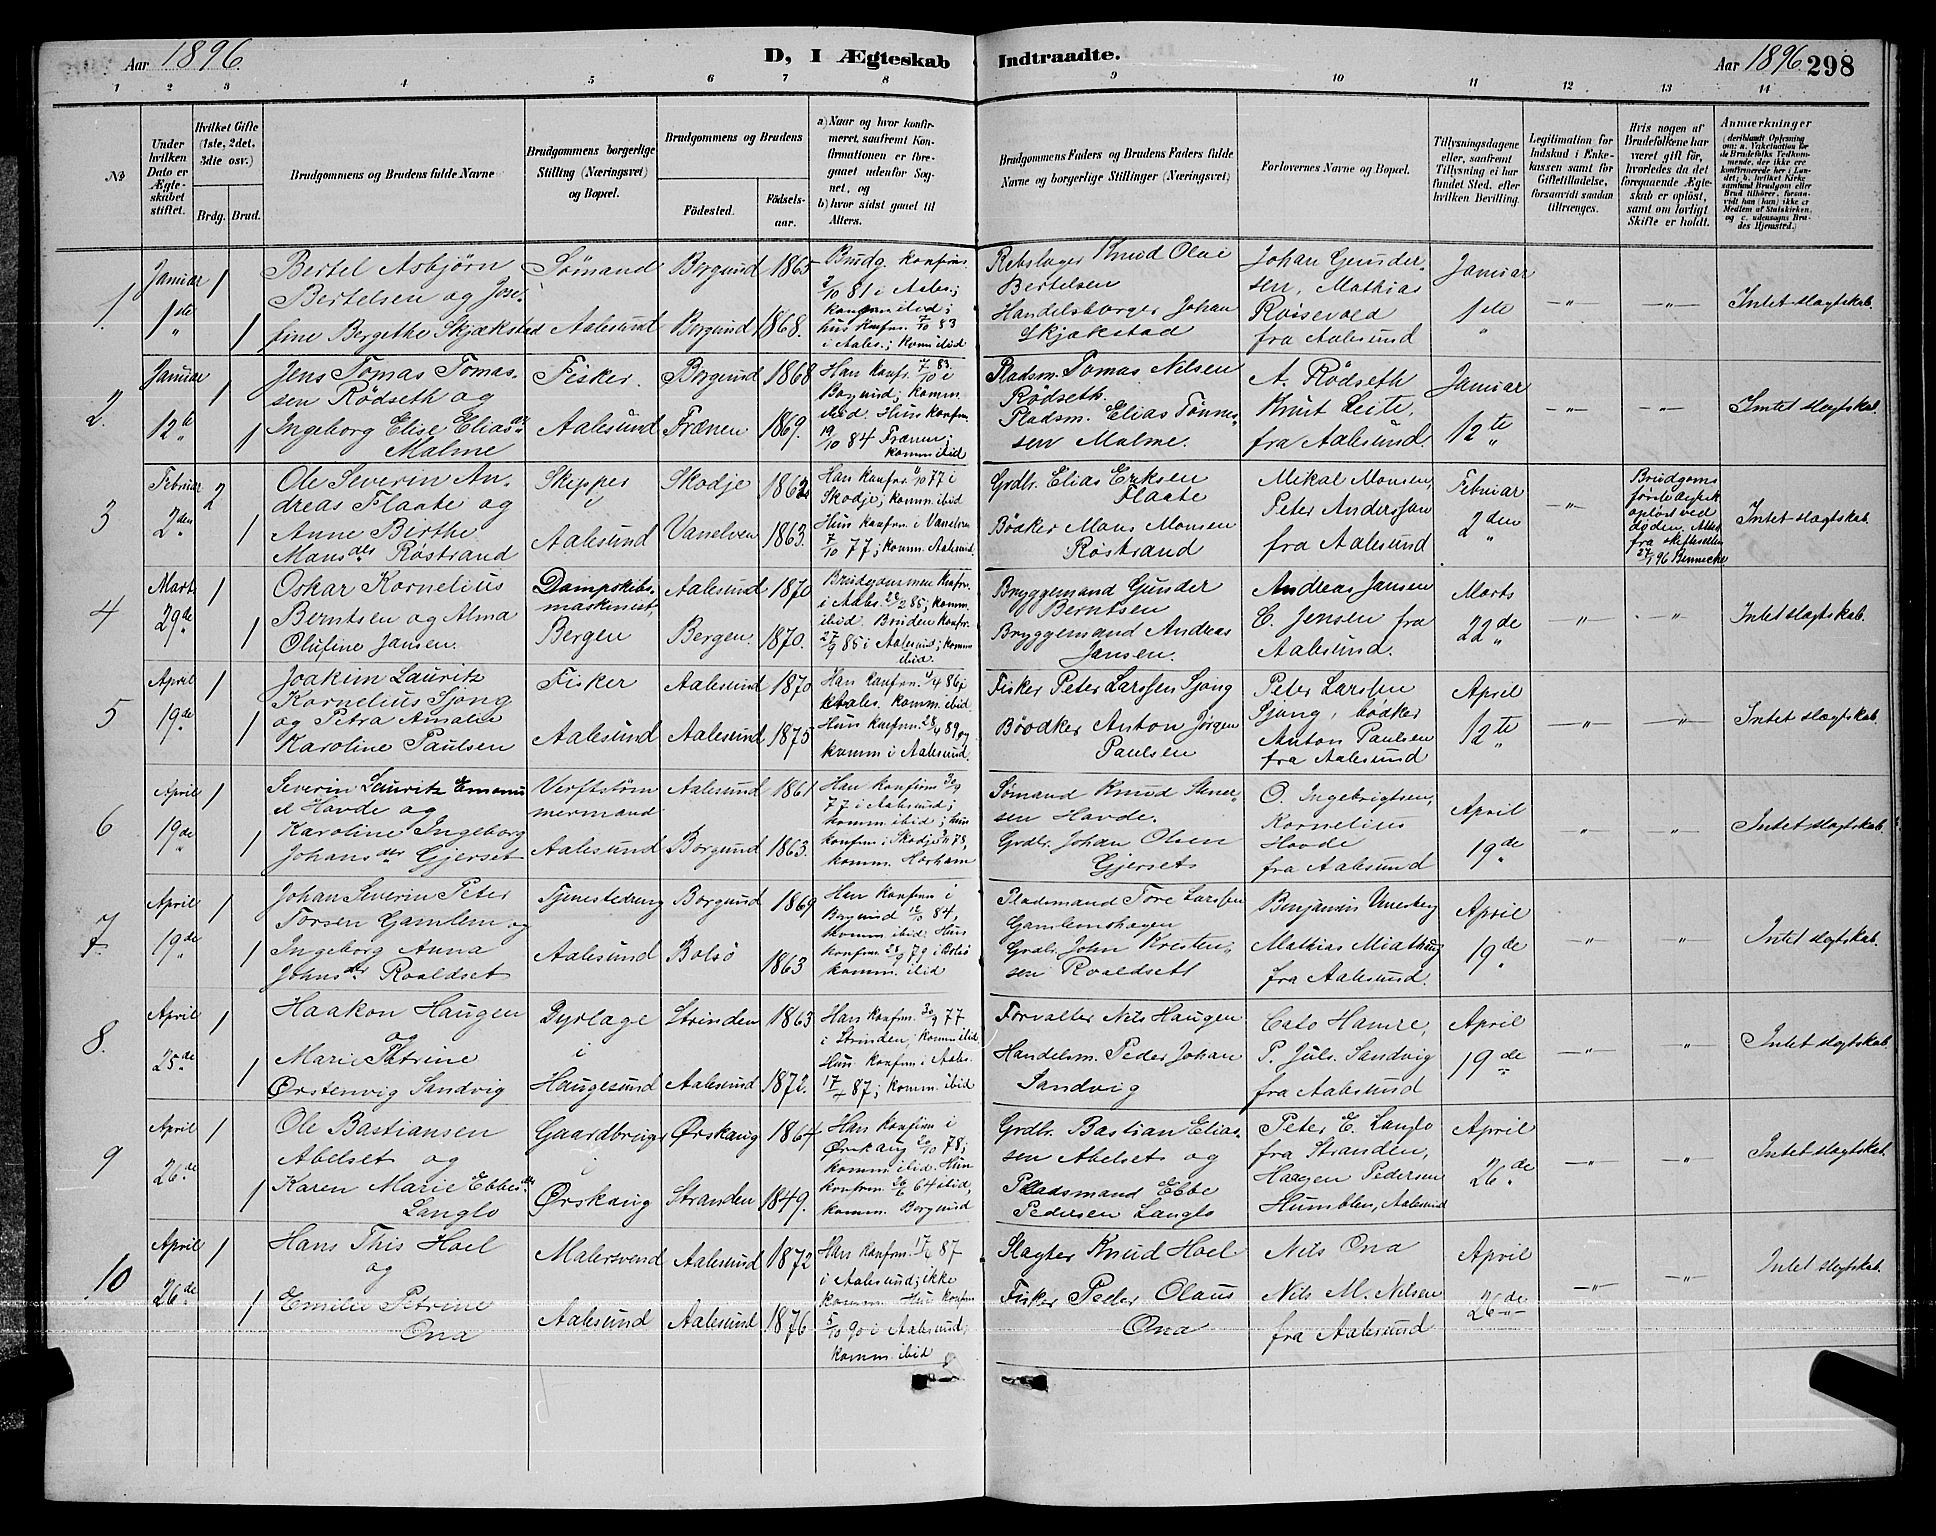 Aar 1896.
D, I Ægteskab Indtraadte.
Aar 1896. 298
1 2 3 4 5 6 7 8 9 10 11 12 13 14
No
Under hvilken Dato er Ægteskabet stiftet.
Hvilket Gifte (1ste, 2det, 3die osv.)
Brdg. Brud.
Brudgommens og Brudens fulde Navne
Brudgommens borgerlige Stilling (Næringsvei) og Bopæl.
Brudgommens og Brudens
Fødested.
Fødselsaar.
a) Naar og hvor konfirmeret, saafremt Konfirmationen er foregaaet udenfor Sognet, og
b) hvor sidst gaaet til Alters.
Brudgommens Faders og Brudens Faders fulde Navne og borgerlige Stillinger (Næringsvei)
Forlovernes Navne og Bopæl.
Tillysningsdagene eller, saafremt Tillysning ei har fundet Sted, efter hvilken Bevilling.
Legitimation for Indskud i Enkekassen samt for Giftetilladelse, forsaavidt saadan tiltrænges.
Hvis nogen af Brudefolkene har været gift før, hvorledes da det foregaaende Ægteskab er opløst, samt om lovligt Skifte er holdt.
Anmærkninger
1. Januar 1ste " 1 1
Bertel Asbjørn
Bertelsen og Jose-
fine Bergethe Skjækstad
Sømand Aalesund
Borgund 1865
Borgund 1868.
Brudg. konfirm.
2/10 81 i Aales.;
komm ibid;
hus konfrm. 7/10 83
i Aales.; komm ibid
Rebslager Knud Olai
Bertelsen
Handelsborger Johan
Skjækstad
Johan Gunder-
sen, Mathias
Roisevold
fra Aalesund
Januar 1ste "
-"- -"- Intet slægtskab.
2. Januar 12te " 1 1
Jens Tomas Tomas-
sen Rødseth og
Ingeborg Elise Eliasdr
Malme
Fisker. Aalesund
Borgund 1868
Frænen 1869.
Han konfr. 7/10 83 i
Borgund; komm.
ibid. Hun konfrm.
19/10 84 Frænen;
komm ibid
Pladsm. Tomas Nilsen
Rødseth.
Pladsm. Elias Tønnes-
sen Malme.
A. Rødseth
Knut Leite,
fra Aalesund.
Januar 12te "
-"- -"- Intet slægtskab.
3 Februar 2den " 2 1
Ole Severin An-
dreas Flaate og
Anne Birthe
Mansdtr Røstrand
Skipper i Aalesund
Skodje 1862
Vanelven 1863.
Skodje; komm. ibid
Hun konfrm. i Vanelven
7/10 77; komm. Aalesund.
Grdbr. Elias Eriksen
Flaate
Bødker Mons Monsen
Røstrand
Mikal Monsen,
Peter Anderssen
fra Aalesund
Februar 2den "
-"-
Brudgoms
første ægtsk
opløst ved
døden. Attest
fra skifteretten
27/1 96 Bennecke
Intet slægtskab.
4 Marts 29de " 1 1
Oskar Kornelius
Berntsen og Alma
Olufine Jansen.
Dampskibs-
maskinist,
Bergen
Aalesund 1870
Bergen. 1870.
Brudgommen konfrm.
i Aales. 2%/2 85; komm.
ibid. Bruden konfr.
27/9 85 i Aalesund; komm
ibid.
Bryggemand Gunder
Berntsen
Bryggemand Andreas
Jansen.
Andreas Jansen
C. Jensen fra
Aalesund.
Marts 22de "
-"- -"- Intet slægtskab.
5 April 19de " 1 1
Joakim Lauritz
Kornelius Sjong
og Petra Amalie
Karoline Paulsen
Fisker Aalesund
Aalesund 1870
Aalesund 1875
Aales. komm. ibid.
Hun konfrm. 28/4 89 og
komm i Aalesund.
Fisker Peter Larssen Sjong
Bødker Anton Jørgen
Paulsen
Peter Larssen
Sjong, bødker
Anton Paulsen
fra Aalesund
April 12te "
-"- -"- Intet slægtskab.
6 April 19de " 1 1
Severin Lauritz Emanu
el Hovde og
Karoline Ingeborg
Johansdtr Gjerset
Verftstøm
mermand
Aalesund
Aalesund 1861
Borgund 1863.
Han konfirm 30/9
77 i Aalesund;
komm ibid; hun
konfrm. i Skodje
komm. Harham
Sømand Knud Stener-
sen Hovde.
Grdbr. Johan Olsen
Gjerset
O. Ingebrigtsen,
Kornelius
Hovde
fra Aalesund
April 19de "
-"- -"- Intet slægtskab.
7. April 19de " 1 1
Johan Severin Peter
Torsen Gamlem og
Ingeborg Anna
Johnsdtr Roaldset
Tjenestedreng
Aalesund
Borgund 1869
Bolsø 1863
Han konfrm i
Borgund 84,
komm ibid; Hun
konfrm. 28/9 79 i Bolsø
komm. ibid
Pladsmand Tore Larssen
Gamlemshagen
Grdbr. John Kresten-
sen Roaldset
Benjamin
Mathias
fra Aalesund.
April 19de "
-"- -"- Intet slægtskab.
8. April 25de " 1 1
Haakon Haugen
og
Marie Petrine
Ørstenvig Sandvig
Dyrlæge
i
Haugesund
Strinden 1863
Aalesund 1872.
Han konfrm. 30/9 77
i Strinden; komm ibid
Hun konfrm. i Aales.
87; komm. ibid
Forvalter Nils Haugen
Handelsm. Peder Johan
Sandvig
Cato Hamre,
P. Jul. Sandvig
fra Aalesund
April 19de "
-"- -"- Intet slægtskab.
9 April 26de " 1 1
Ole Bastiansen
Abelset og
Karen Marie Ebbesdtr
Langlo
Gaardbruger
i
Ørskaug
Ørskaug 1864
Stranden 1849.
Han konfirm i
Ørskaug 20/10 78;
komm ibid. Hun
konfrm. 26/6 64 ibid,
komm. Borgund
Grdbr. Bastian Elias-
sen Abelset og
Pladsmand Ebbe
Pedersen Langlo
Peter E. Langlo
fra Stranden,
Haagen Pedersen
Humblen, Aalesund
April 26de "
-"- -"- Intet slægtskab.
10 April 26de " 1 1
Hans This Hoel
og
Emilie Petrine
Ona
Malersvend
Aalesund
Aalesund 1872
Aalesund 1876
Han konfrm. 17/4 87
i Aalesund; ikke
komm. Hun konfrm
5/10 90 i Aalesund;
komm. ibid
Slagter Knud Hoel
Fisker Peder Olaus
Ona
Nils Ona
Nils M. Nilsen
fra Aalesund
April 26de "
-"- -"- Intet slægtskab.